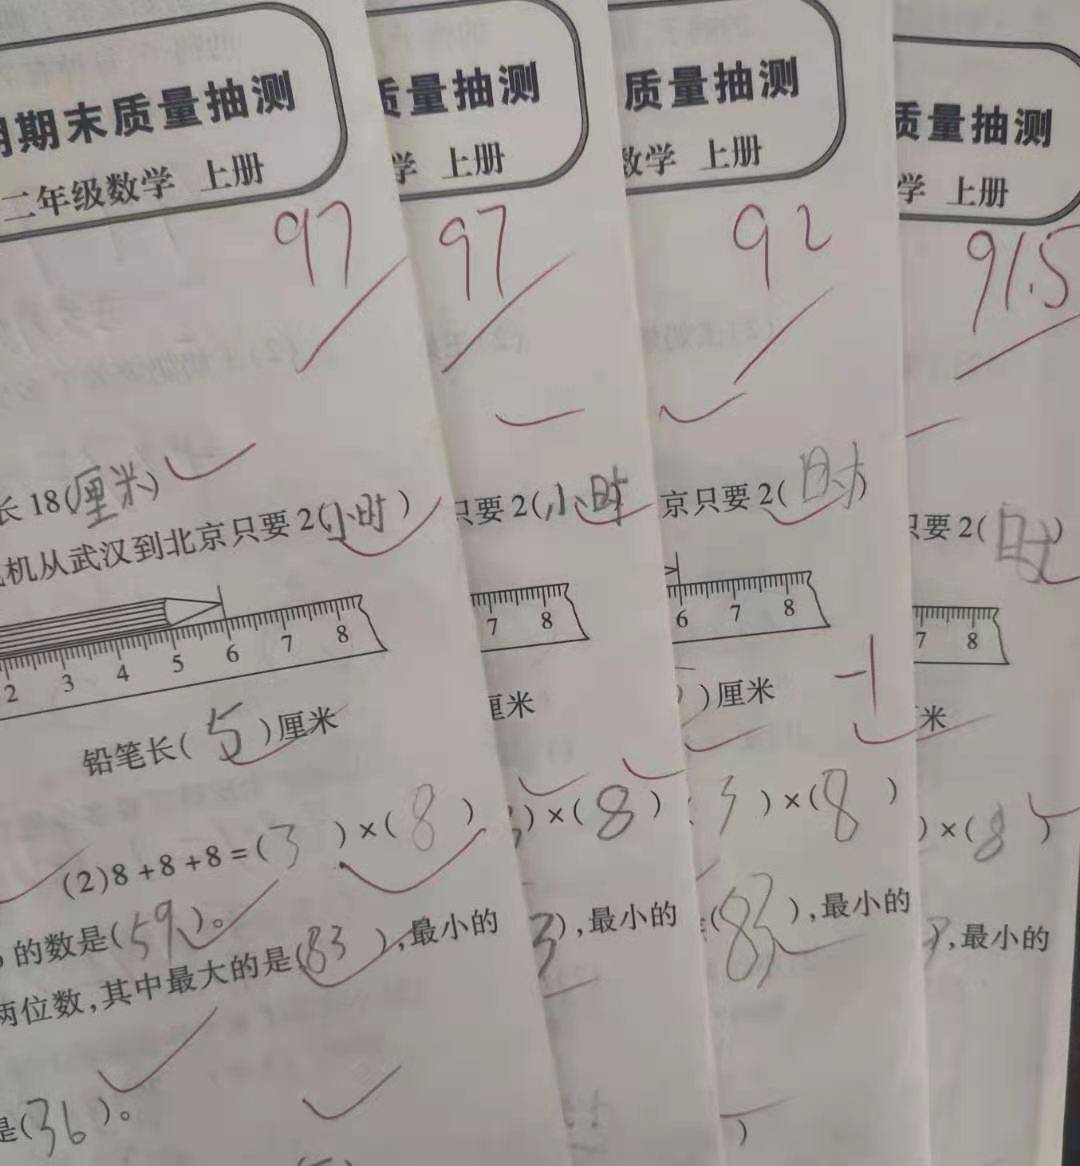 期末质量抽测
二年级数学 上册
97
长18(厘米)
机从武汉到北京只要2(小时)
2 3 4 5 6 7 8
铅笔长(5)厘米
(2)8+8+8=(3)×(8)
的数是(59)。
两位数,其中最大的是(83),最小的
是(36)。
质量抽测
学 上册
97
只要2(小时
7 8
厘米
)×(8)
3),最小的
质量抽测
数学 上册
92
京只要2(时)
6 7 8
)厘米
-1
3)×(8)
(83),最小的
)
质量抽测
学 上册
91.5
只要2(时)
7 8
米
)×(8)
),最小的